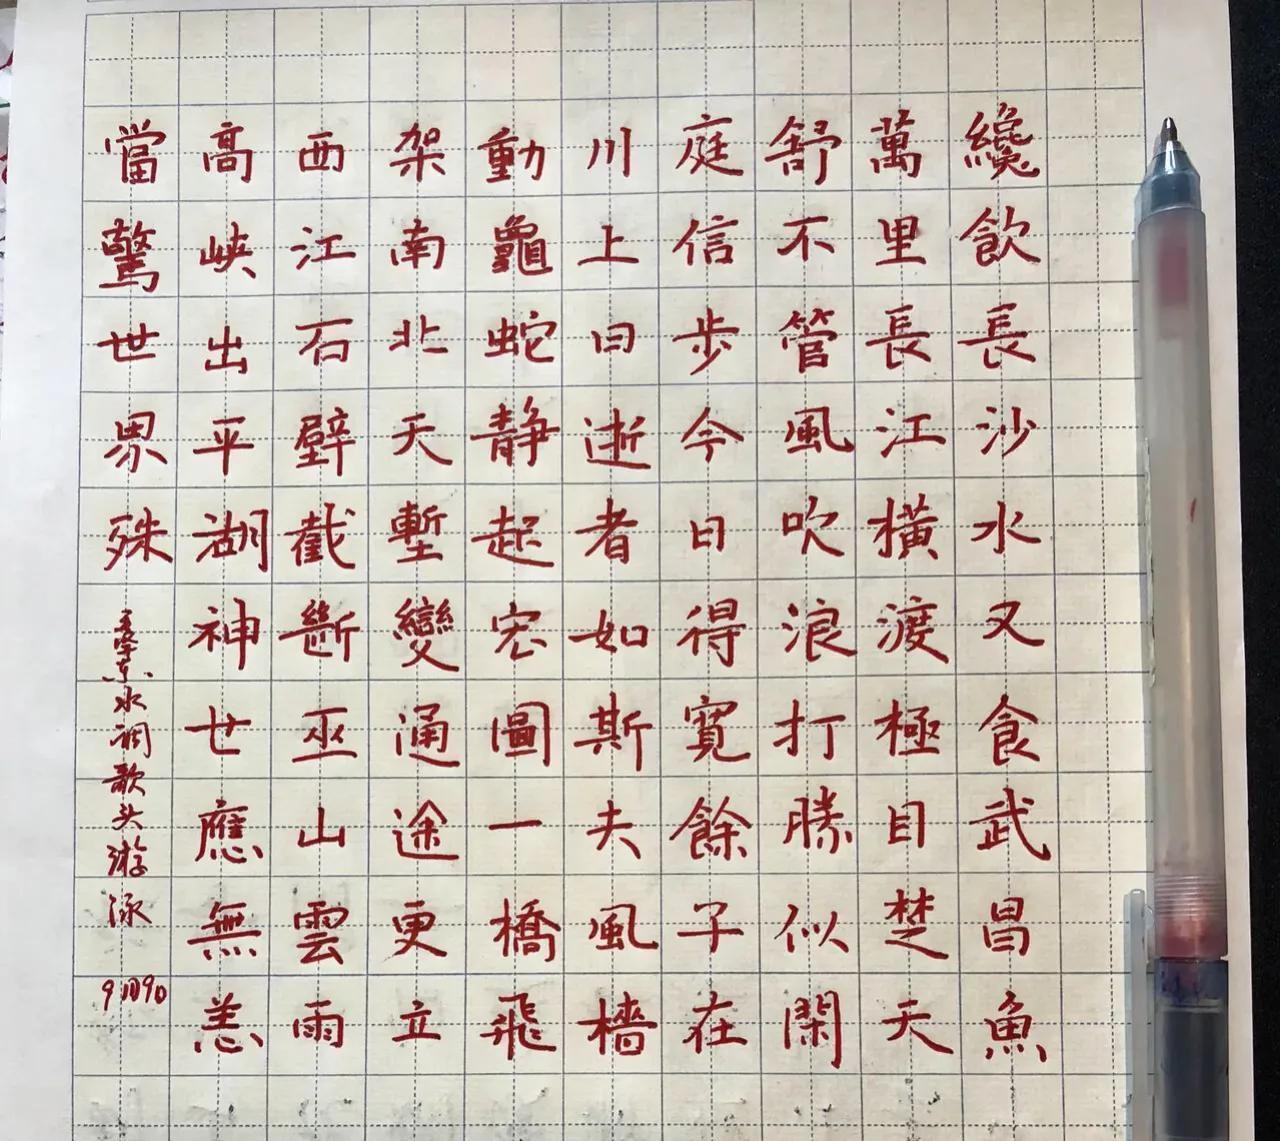 纔飲長沙水又食武昌魚
萬里長江橫渡極目楚天
舒不管風吹浪打勝似閑
庭信步今日得寬餘子在
川上曰逝者如斯夫風檣
動龜蛇静起宏圖一橋飛
架南北天塹變通途更立
西江石壁截斷巫山雲雨
高峽出平湖神世應無恙
當驚世界殊
毛泽东水调歌头游泳
9月9日